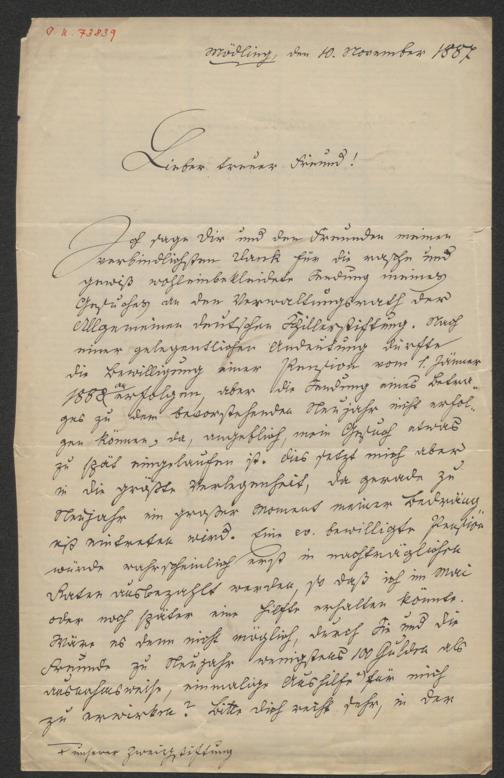 J. N. 73839
Mödling, den 10. November 1887
Lieber treuer Freund!
Ich sage Dir und den Freunden meinen
verbindlichsten Dank für die rasche und
gewiß wohleinbekleidete Sendung meines
Gesuches an den Verwaltungsrath der
Allgemeinen deutschen Schillerstiftung. Nach
einer gelegentlichen Andeutung dürfte
die Bewilligung einer Pension vom 1. Jänner
1888 an erfolgen, aber die Sendung eines Betra-
ges zu dem bevorstehenden Neujahr nicht erfol-
gen können, da, angeblich, mein Gesuch etwas
zu spät eingelaufen ist. Dies setzt mich aber
in die größte Verlegenheit, da gerade zu
Neujahr ein großer Moment meiner Bedräng
niß eintreten wird. Eine ev. bewilligte Pension
würde wahrscheinlich erst in nachträglichen
Raten ausbezahlt werden, so daß ich im Mai
oder noch später eine Hilfe erhalten könnte.
Wäre es denn nicht möglich, durch Sie und die
Freunde zu Neujahr wenigstens 100 Gulden als
ausnahmsweise, einmalige Aushilfe für mich
zu erwirken? Bitte Dich recht sehr, in der
unserer Zweigstiftung